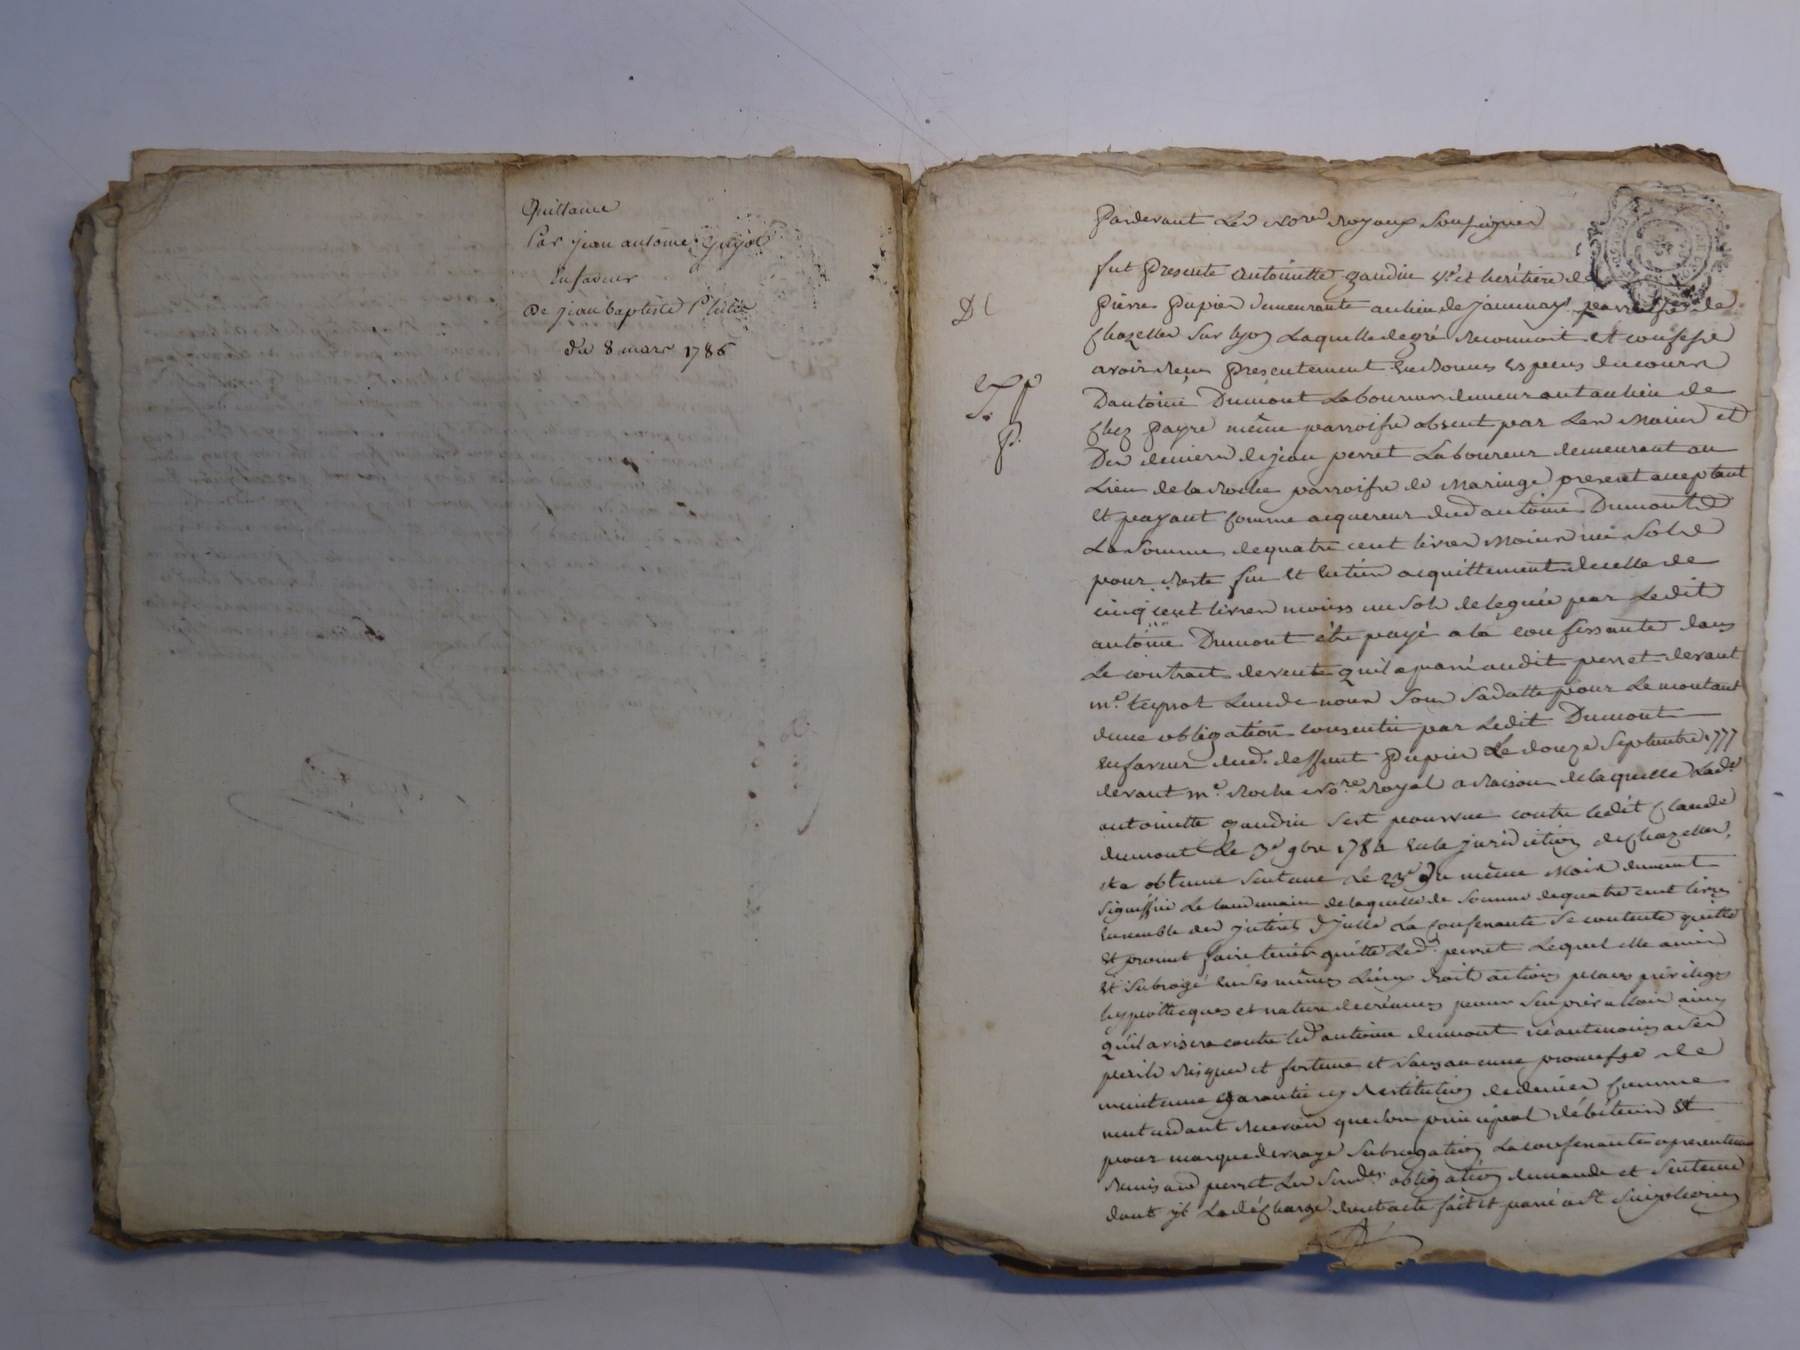 Quittance
Par jean antoine Guyot
en faveur
De jean baptiste
du 8 mars 1786
Pardevant Les No.res Royaux Soussignés
fut Presente Antoinette gaudin V.e et heritiere de
Pierre Pupier demeurante au lieu de jammary parroisse de
Chazelles sur lyon Laquelle de gré Reconnoit et confesse
avoir Reçu Presentement en Bonnes Especes du cours
D'antoine Dumont Laboureur demeurant au lieu de
Chez Payre même parroisse absent par Les Mains et
Des deniers de jean perret Laboureur demeurant au
Lieu de la Roche parroisse de Maringe present acceptant
Et payant comme acquereur dud antoine Dumont
La Somme de quatre cent livres Moins un Sol
pour Reste fin Et Entier acquittement de celle de
cinq cent livres moins un Sol deleguée par Ledit
antoine Dumont être payé a la confessante dans
Le contrat de vente qu'il a passé audit perret devant
m.e L'un de nous Sous Sa datte pour Le montant
d'une obligation consentie par Ledit Dumont
en faveur dud. deffunt Pupier Le douze Septembre 1777
devant m.e Roche No.re Royal a Raison de laquelle Lad.e
antoinette gaudin s'est pourvue contre ledit Claude
dumont Le 3.e 9bre 1784 en la juridiction de Chazelles,
et a obtenu Sentence Le 23.e du même Mois dument
Signiffiée Le landemain de laquelle de Somme de quatre cent livres
Ensemble des jnterets d'jcelle La confessante Se contente quitte
Et promet faire tenir quitte Led. perret Lequel elle a mis
Et Subrogé en Ses mêmes Lieux droit actions places privileges
hypotheques et nature de créances pour S'en prévalloir ainsy
qu'il avisera contre led antoine dumont néantmoins a Ses
perils Risques et fortune et Sans aucune promesse de
maintenue Garantie ny Restitution de denier comme
n'entendant Recevoir que Son principal débiteur Et
pour marque de vraye Subrogation La confessante a presentement
Remis aud perret Les Susd.es obligation demande et Sentence
dont il La décharge dont acte fait et passé a S.t Simphorien